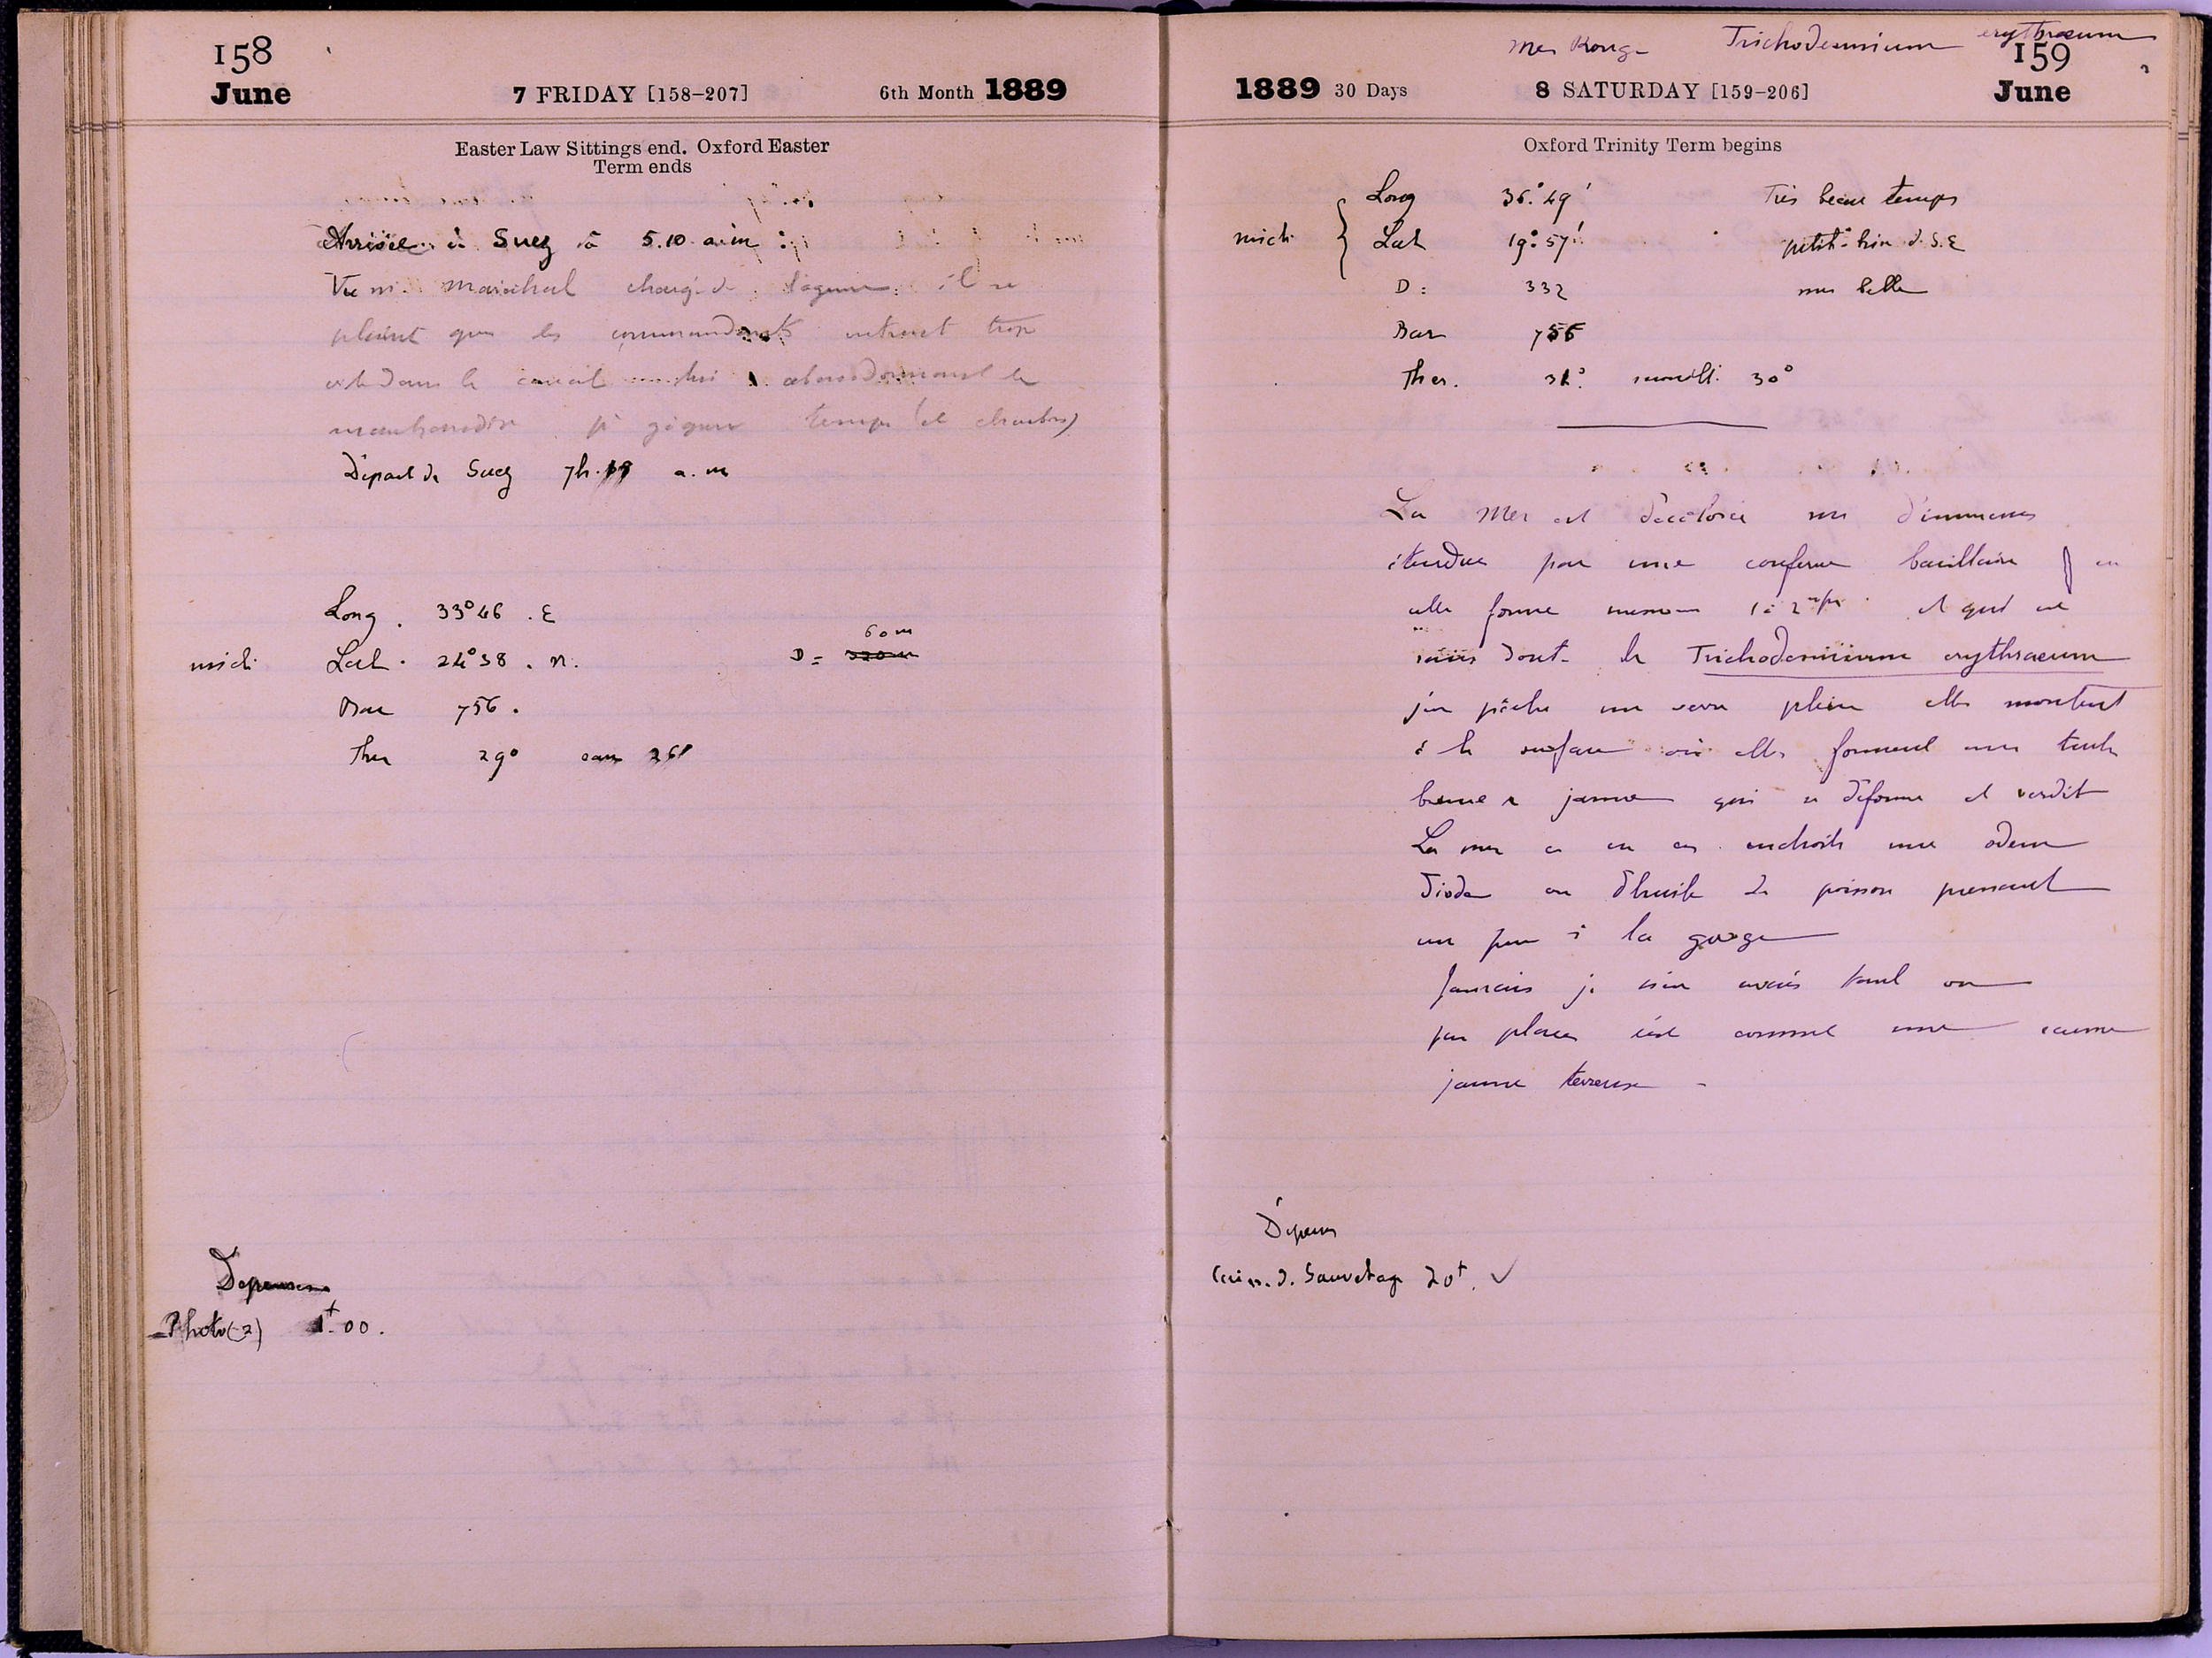 158
June
7 FRIDAY [158-207]
6th Month 1889
Easter Law Sittings end. Oxford Easter
Term ends
Arrivée à Suez à 5.10 a.m :
Vu m. chargé de il se
plaint que les commandants trop
vite dans le canal abandonnant la
marchandise temps et charbon)
Départ de Suez 7h. a.m
Long. 33°46 . E
midi Lat. 24°38 . N. D = 60m
Bar 756.
Ther 29° eau 26°
Depenses
Photo (2) 1f.00.
Mer Rouge Trichodesmium erythraeum
159
June
1889 30 Days
8 SATURDAY [159-206]
Oxford Trinity Term begins
Long 36°.49' Très beau temps
midi Lat 19°.57' petit brin d. S.E
D : 332 mer belle
Bar 756
Ther. 31° mouillé 30°
La Mer est décolorée sur d'immenses
étendues par une conferve bacillaire en
elle forme 1 à 2 et qui est
sans doute le Trichodesmium erythraeum
j'en pêche un verre plein elles montent
à la surface où elles forment une teinte
jaune qui se déforme et verdit
La mer a en ces endroits une odeur
d'iode ou d'huile de poisson prenant
un peu à la gorge
Jamais je n'en avais tant vu
par places c'est comme une écume
jaune terreuse -
Dépenses
Caiss. d. Sauvetage 20f. ✓